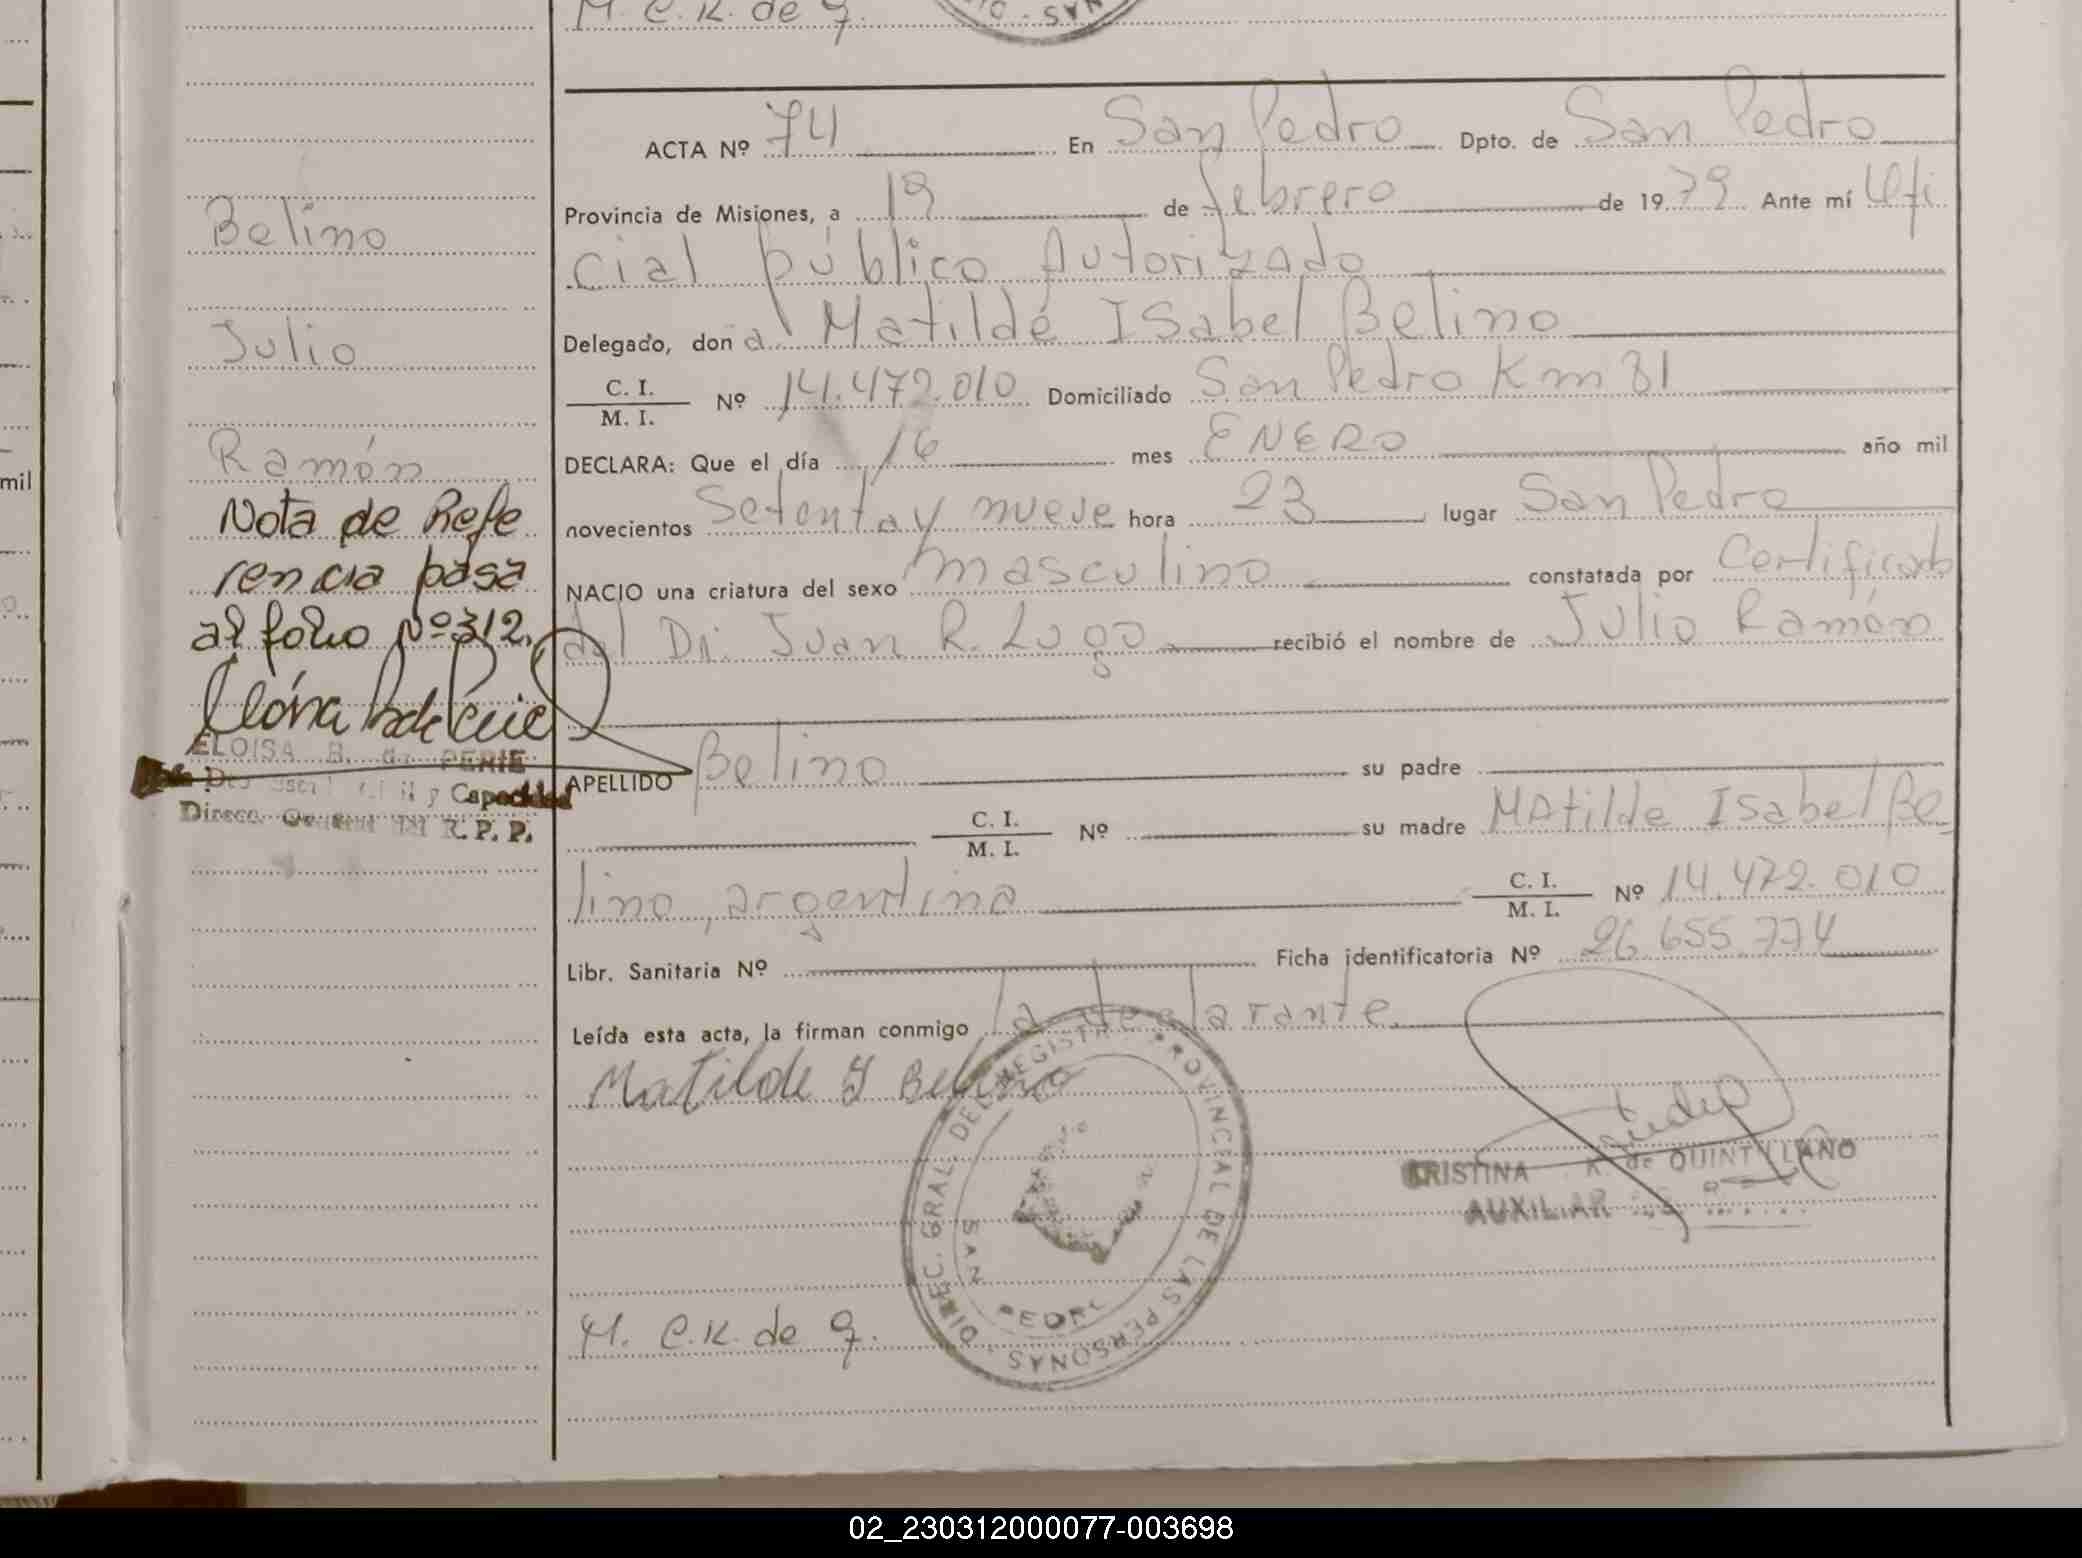 M. C. K. de q.
mil
Belino
Julio
Ramón
Nota de Refe
rencia pasa
al folio Nº 312.
ELOISA B. de PERIE
Capacidad
Direcc. General del R. P. P.
ACTA Nº 74 En San Pedro Dpto. de San Pedro
Provincia de Misiones, a 19 de febrero de 1979 Ante mí Ofi
cial público Autorizado
Delegado, don a Matilde Isabel Belino
C. I.
M. I. Nº 14.472.010 Domiciliado San Pedro Km 81
DECLARA: Que el día 16 mes ENERO año mil
novecientos Setenta y nueve hora 23 lugar San Pedro
NACIO una criatura del sexo masculino constatada por Certificado
del Dr. Juan R. Lugo recibió el nombre de Julio Ramón
APELLIDO Belino su padre
C. I.
M. I. Nº su madre MAtilde Isabel Be
lino, argentina C. I.
M. I. Nº 14.472.010
Libr. Sanitaria Nº Ficha identificatoria Nº 26.655.774
Leída esta acta, la firman conmigo la declarante.
Matilde I Belino
DIREC. GRAL. DEL REGISTRO PROVINCIAL DE LAS PERSONAS
SAN PEDRO
CRISTINA K. de QUINTILLANO
AUXILIAR
M. C. K. de q.
02_230312000077-003698